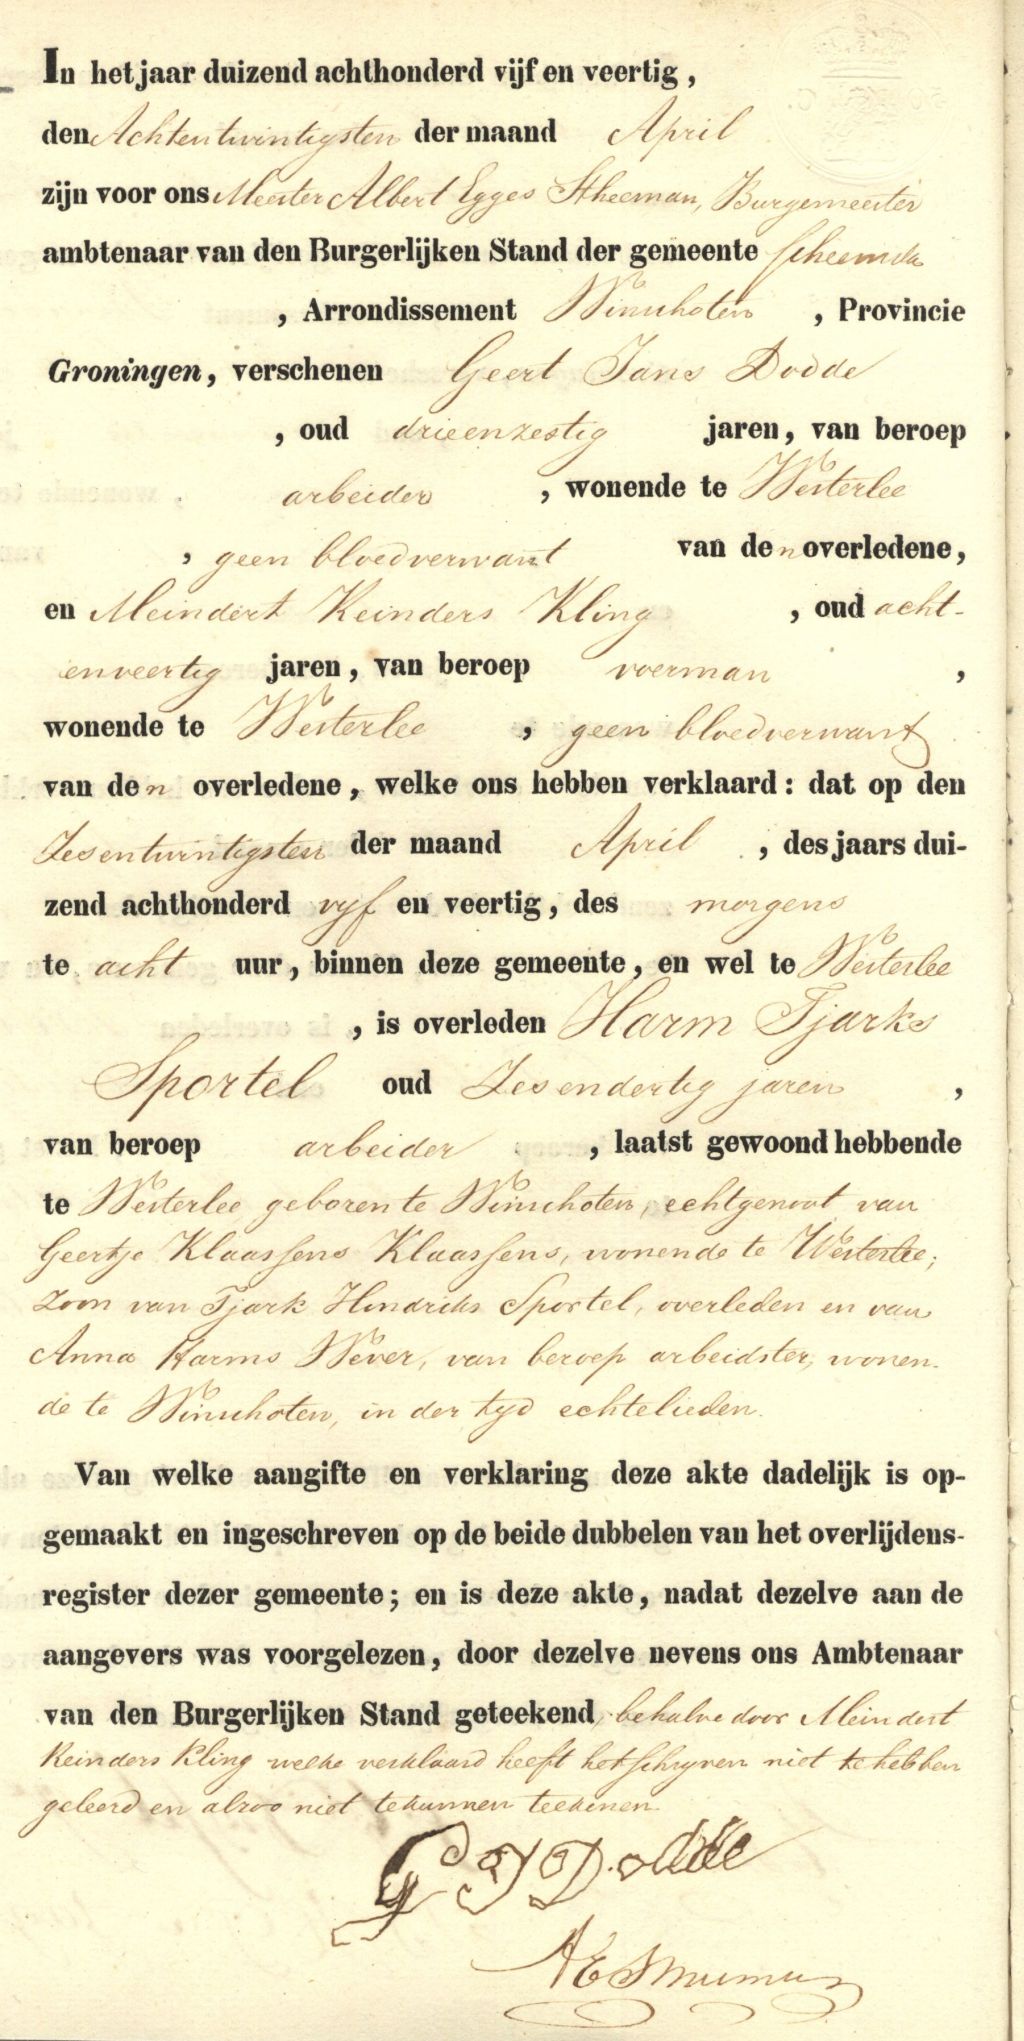 In het jaar duizend achthonderd vijf en veertig,
den Achtentwintigsten der maand April
zijn voor ons Meester Albert Egges Stheeman, Burgemeester
ambtenaar van den Burgerlijken Stand der gemeente Scheemda
, Arrondissement Winschoten , Provincie
Groningen, verschenen Geert Jans Dodde
, oud drieenzestig jaren, van beroep
arbeider , wonende te Westerlee
, geen bloedverwant van den overledene,
en Meindert Reinders Kling , oud acht-
enveertig jaren, van beroep voerman ,
wonende te Westerlee , geen bloedverwant
van den overledene, welke ons hebben verklaard: dat op den
Zesentwintigsten der maand April , des jaars dui-
zend achthonderd vyf en veertig, des morgens
te acht uur, binnen deze gemeente, en wel te Westerlee
, is overleden Harm Tjarks
Sportel oud Zesendertig jaren ,
van beroep arbeider , laatst gewoond hebbende
te Westerlee, geboren te Winschoten, echtgenoot van
Geertje Klaassens Klaassens, wonende te Westerlee;
zoon van Tjark Hindriks Sportel, overleden en van
Anna Harms Wever, van beroep arbeidster, wonen-
de te Winschoten, in der tyd echtelieden.
Van welke aangifte en verklaring deze akte dadelijk is op-
gemaakt en ingeschreven op de beide dubbelen van het overlijdens-
register dezer gemeente; en is deze akte, nadat dezelve aan de
aangevers was voorgelezen, door dezelve nevens ons Ambtenaar
van den Burgerlijken Stand geteekend, behalve door Meindert
Reinders Kling welke verklaard heeft het schryven niet te hebben
geleerd en alzoo niet te kunnen teekenen.
G J Dodde
AEStheeman